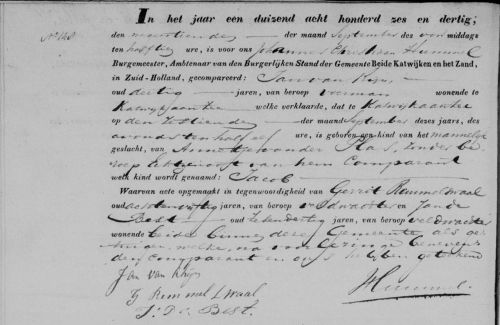 In het jaar een duizend acht honderd zes en dertig;
den der maand September des voor middags
ten half tien ure, is voor ons Johannes Hummel
Burgemeester, Ambtenaar van den Burgerlijken Stand der Gemeente Beide Katwijken en het Zand,
in Zuid-Holland, gecompareerd: Jan van Rhijn
oud dertig jaren, van beroep voerman wonende te
Katwijk aan Zee welke verklaarde, dat te Katwijk aan Zee
op den der maand September dezes jaars, des
avonds ten half elf ure, is geboren een kind van het mannelijk
geslacht, van van der Plas, zonder be
roep Echtgenoot van hem Comparant
welk kind wordt genaamd: Jacob
Waarvan acte opgemaakt in tegenwoordigheid van Gerrit Remmelswaal
oud jaren, van beroep en
Best oud jaren, van beroep veldwachter
wonende beide binnen deze Gemeente als ge
tuigen, welke, na voorlezing benevens
den comparant en ons hebben getekend
Jan van Rhijn
G Remmelswaal
Best.
Hummel